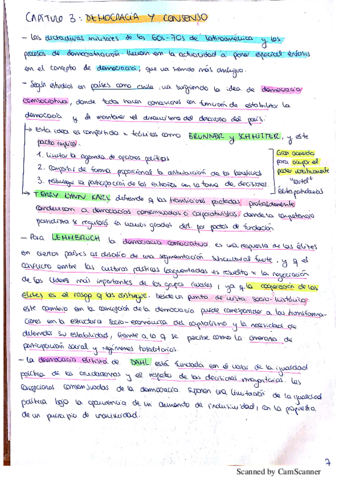 CAPÍTULO 3: DEMOCRACIA Y CONSENSO
- Las dictaduras militares de los 60s-70s de latinoamérica y los
procesos de democratización llevan en la actualidad a poner especial énfasis
en el concepto de democracia; que va siendo más ambiguo.
- Según estudios en países como Chile, va surgiendo la idea de democracia
consociativa, donde todos hacen concesiones en función de estabilizar la
democracia y de mantener el dinamismo del desarrollo del país.
→ Esta idea es compartida x teóricos como BRUNNER y SCHMITTER, y este
pacto implica:
1. Limitar la agenda de opciones políticas
2. Compartir de forma proporcional la distribución de los beneficios
3. Restringir la participación de los extraños en la toma de decisiones
Gran acuerdo
para ocupar el
poder institucionalmente
"cartel"
élites partidarias
→ TERRY LYNN KARL defiende q las transiciones pactadas probablemente
conduzcan a democracias consensuadas o corporativistas; donde la competencia
partidista es regulada en varios grados del por pactos de fundación
- Para LEHMBRUCH la democracia consociativa es una respuesta de las élites
en ciertos países al desafío de una segmentación subcultural fuerte, y q el
conflicto entre las culturas políticas fragmentadas es resuelto x la negociación
de los líderes más importantes de los grupos rivales; ya q la cooperación de las
élites es el rasgo q las distingue. Desde un punto de vista socio-histórico
este cambio en la concepción de la democracia puede corresponder a las transforma-
ciones en la estructura socio-económica del capitalismo y la necesidad de
defender su estabilidad, frente a lo q se percibe como la amenaza de
participación social y regímenes totalitarios.
- La democracia de DAHL está fundada en el valor de la igualdad
política de los ciudadanos y el respeto de las decisiones mayoritarias. Las
consensuadas de la democracia suponen una limitación de la igualdad
política bajo la apariencia de un aumento de inclusividad; con la
de un principio de unanimidad.
7
Scanned by CamScanner